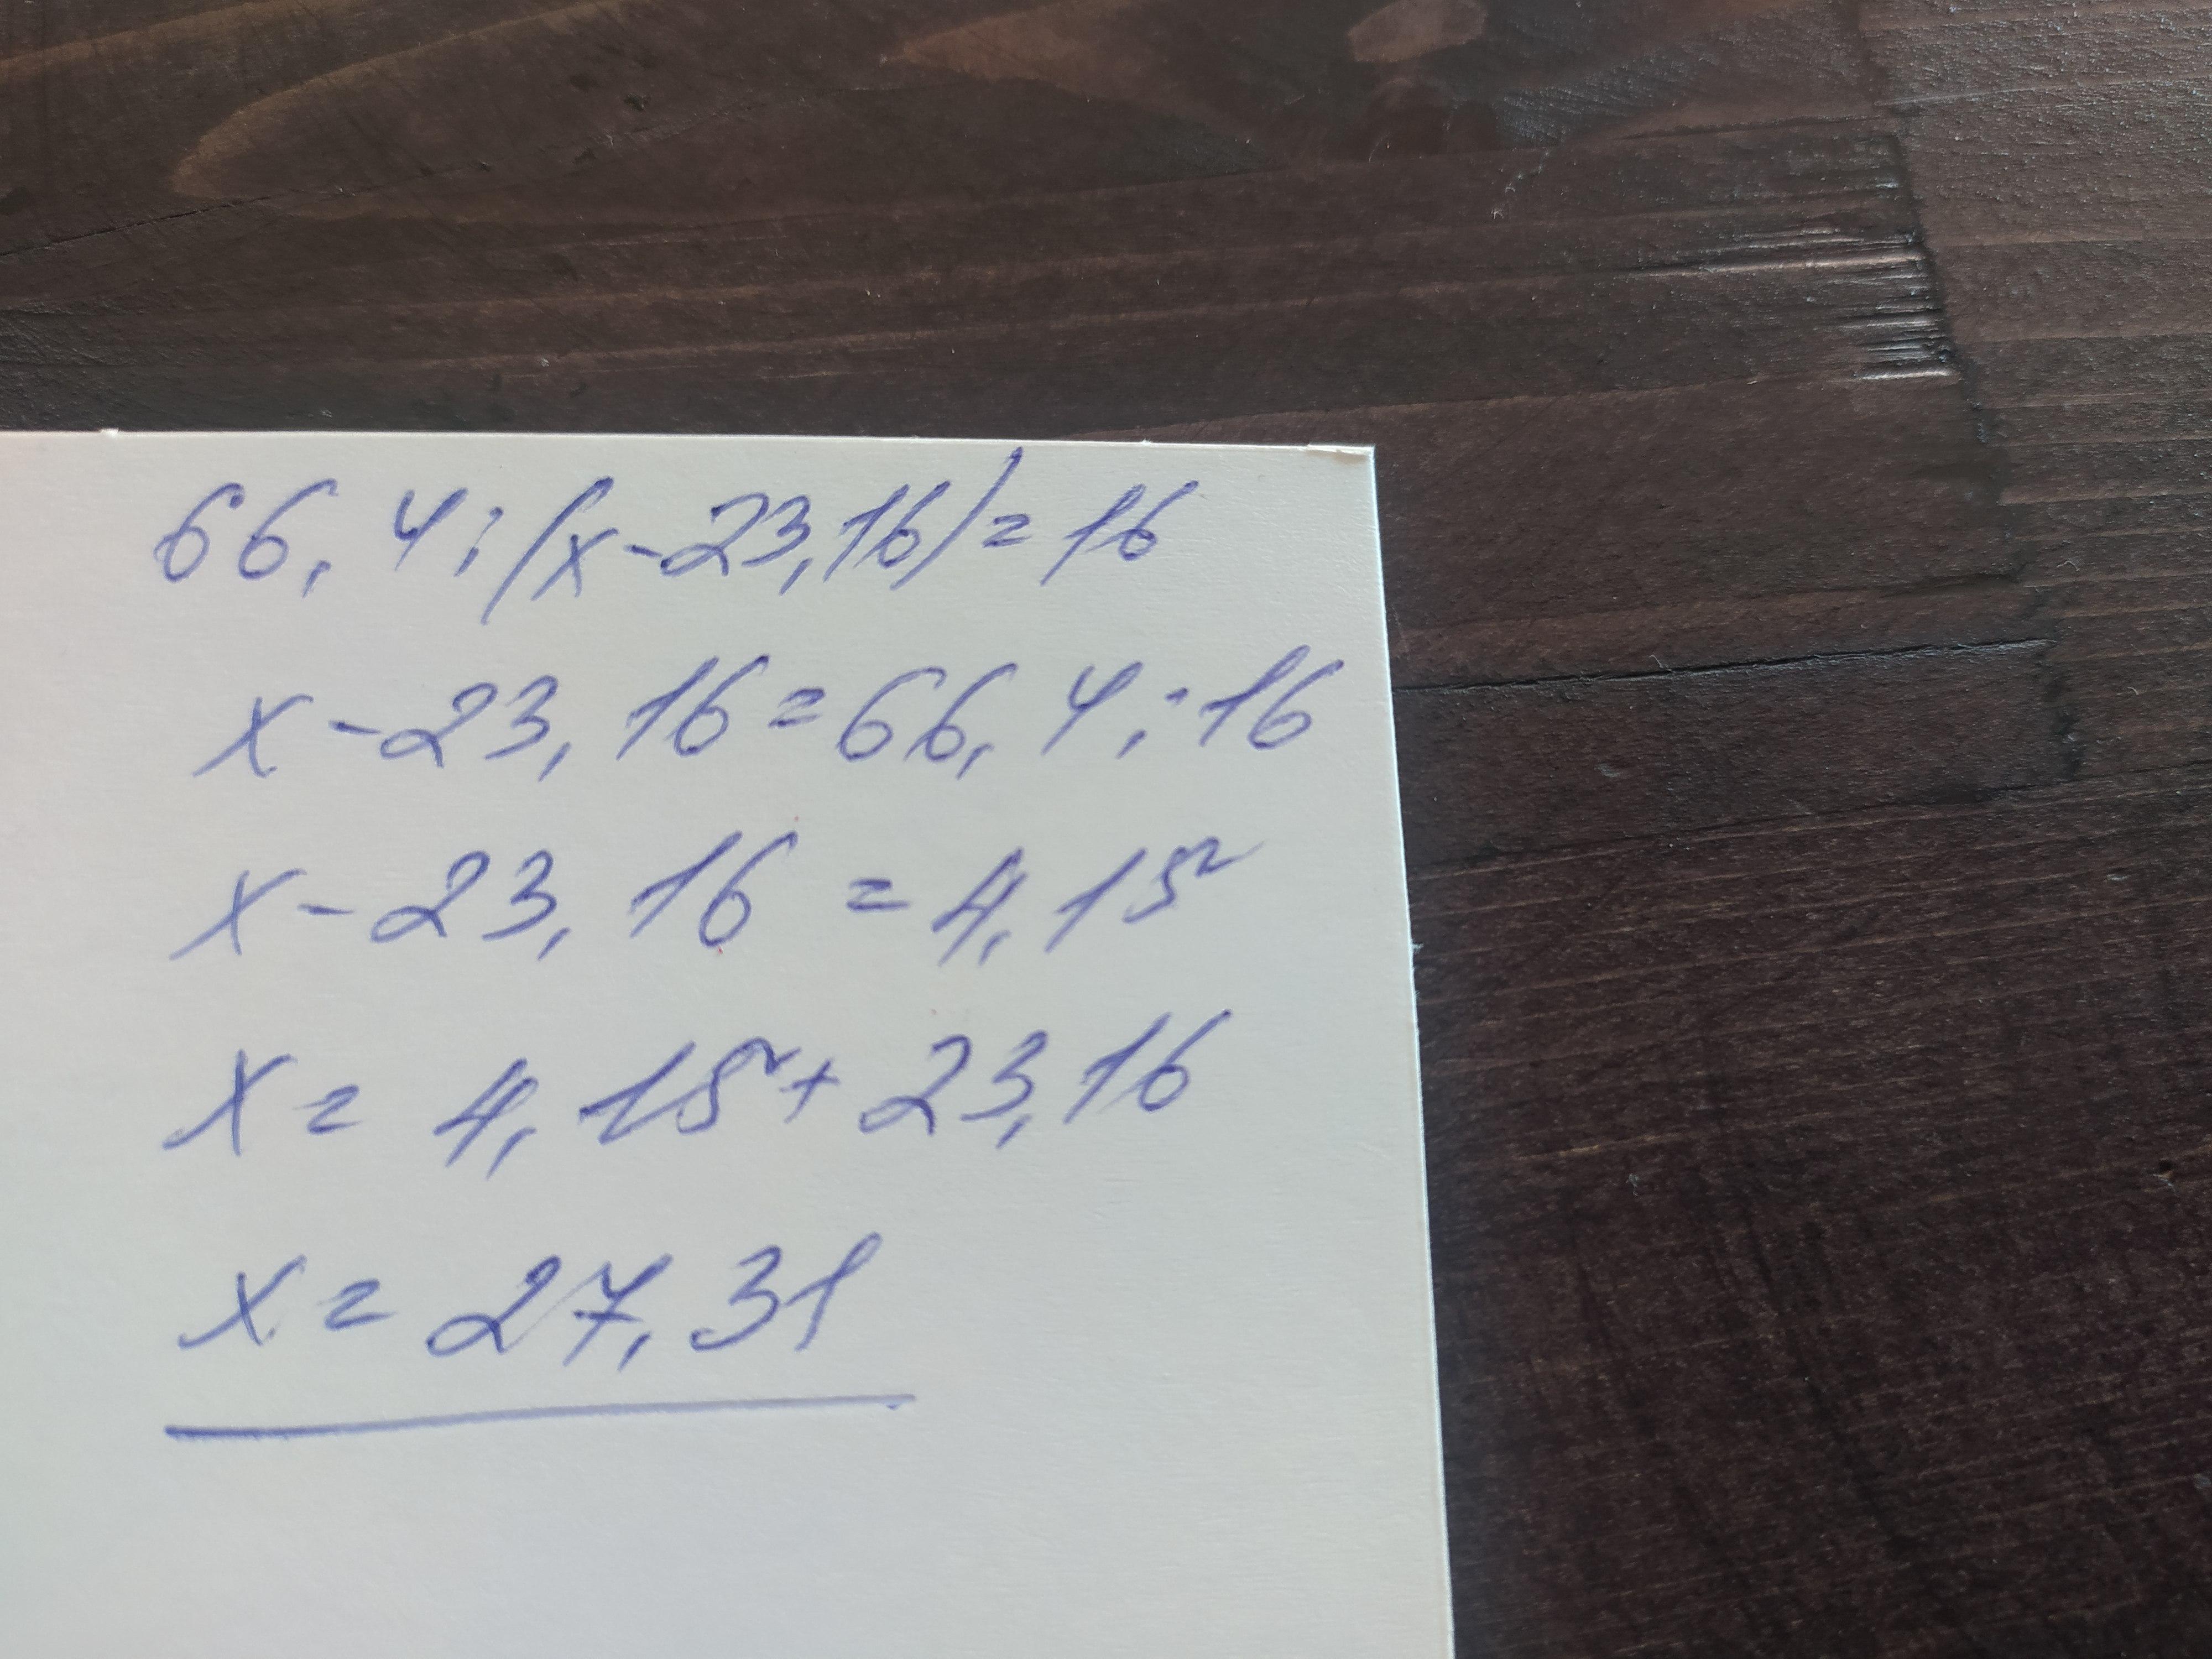 66,4:(x-23,16)=16
x-23,16=66,4:16
x-23,16=4,15
x=4,15+23,16
x=27,31